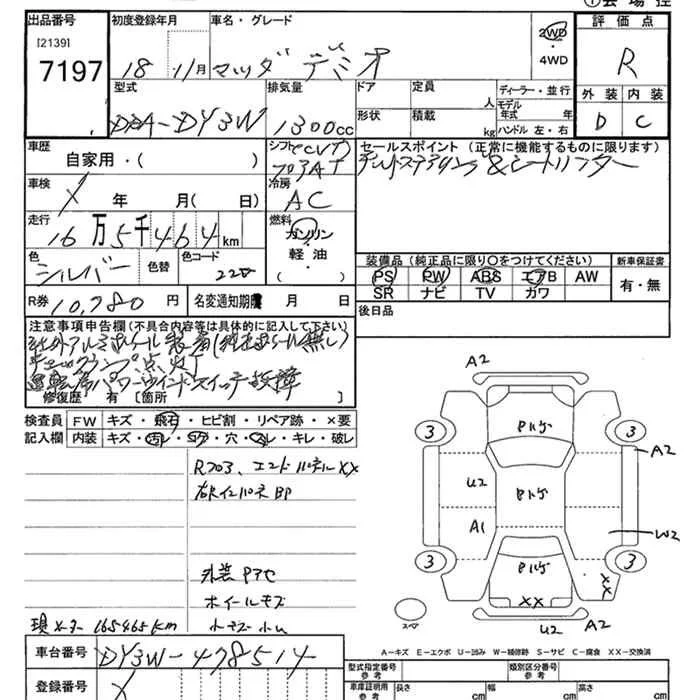 ①会場控
出品番号 初度登録年月 車名・グレード
[2139]
7197
18 11月 マツダ デミオ
2WD
・
4WD
評価点
R
外装 内装
D C
型式 排気量 ドア 定員 人
ディーラー・並行
モデル年式 年
形状 積載 kg ハンドル 左・右
DBA-DY3W 1300cc
車歴
自家用・( )
シフト
フロアAT
セールスポイント(正常に機能するものに限ります)
車検
X 年 月( 日)
冷房
AC
走行
16万5千464km
燃料
ガソリン
軽油
( )
色
シルバー
色替
色コード
22V
装備品(純正品に限り○をつけてください)
PS PW ABS エアB AW
SR ナビ TV カワ
新車保証書
有・無
R券 10,780 円 名変通知期限 月 日
後日品
注意事項申告欄(不具合内容等は具体的に記入して下さい)
社外アルミホイール装着(純正ホイール無し)
チェックランプ点灯
運転席パワーウインドスイッチ故障
修復歴 有 〔箇所 〕
検査員記入欄
FW キズ・飛石・ヒビ割・リペア跡・×要
内装 キズ・汚レ・コゲ・穴・スレ・キレ・破レ
Rフロア、エンドパネルXX
外装
ホイールキズ
現メーター 165465km
A2
3 3
A2
U2
A1
W2
3 3
XX
XX
スペア
U2 A2
A－キズ E－エクボ U－凹み W－補修跡 S－サビ C－腐食 XX－交換済
車台番号 DY3W-478514
登録番号 X
型式指定番号 参考
類別区分番号 参考
車庫証明用 参考 長さ cm 幅 cm 高さ cm